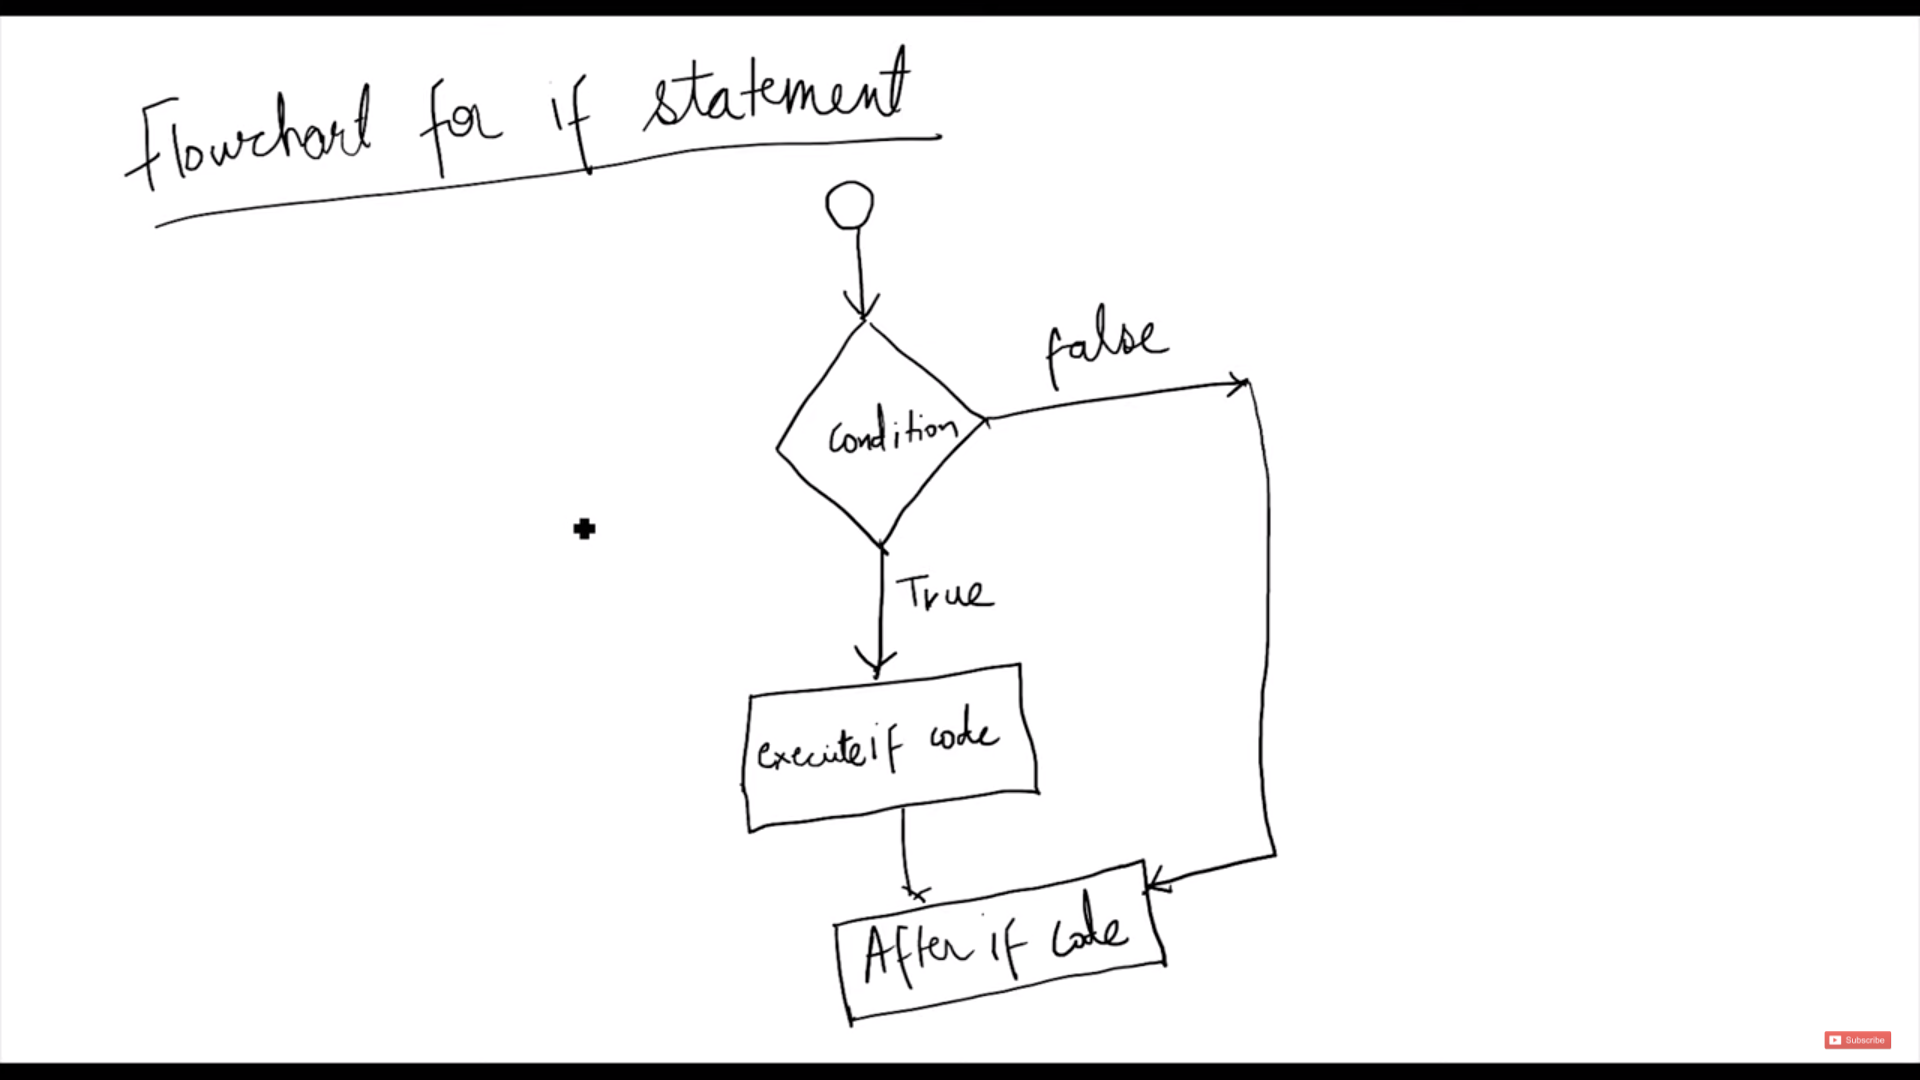 Flowchart for if statement
false
condition
True
execute if code
After if code
Subscribe